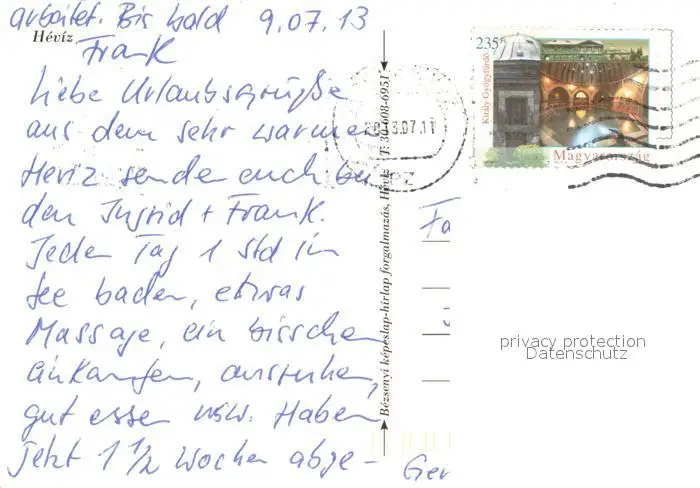 arbeitet. Bis bald 9.07.13
Hévíz
Frank
Liebe Urlaubsgrüße
aus dem sehr warmen
Heviz senden euch bei
den Ingrid + Frank.
Jeden Tag 1 Std im
See baden, etwas
Massage, ein bisschen
einkaufen, ausruhen,
gut essen usw. Haben
jetzt 1 1/2 Wochen abge-
Bézsenyi képeslap-hírlap forgalmazás, Hévíz T: 30-608-6951
235
Király Gyógyfürdő
Magyarország
13.07.11
Fa
Ger
privacy protection
Datenschutz